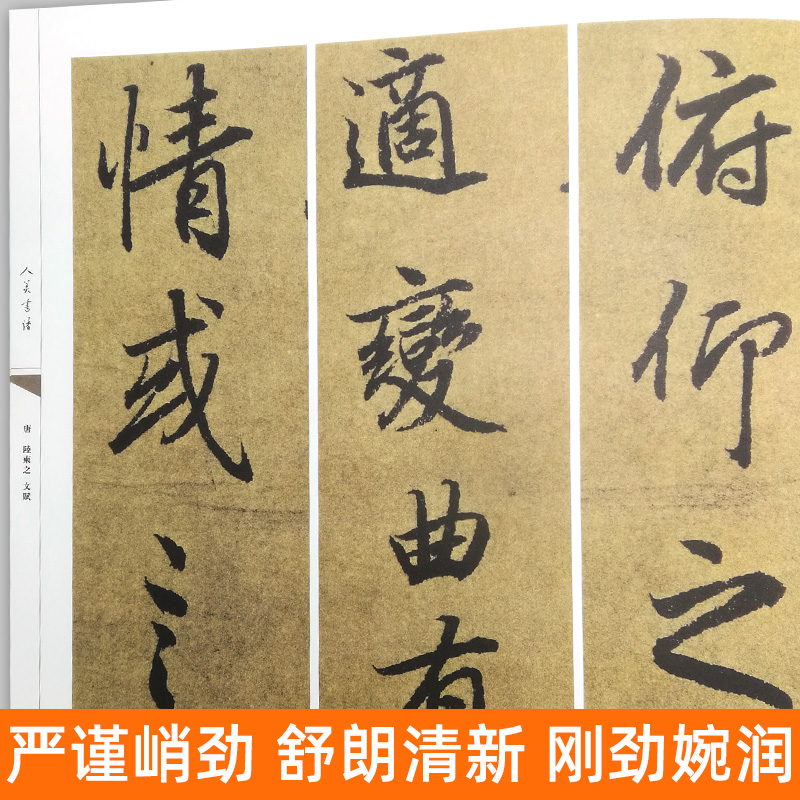 俯仰之
適變曲有
情或言
人美書譜
唐 陸柬之 文賦
严谨峭劲 舒朗清新 刚劲婉润